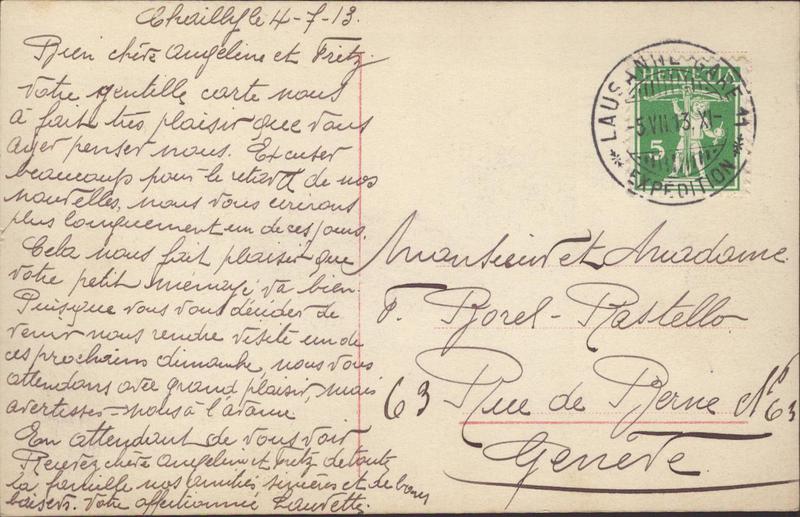 Chailly le 4-7-13.
Bien chère Angeline et Fritz
Votre gentille carte nous
à fait très plaisir que vous
ayer penser nous. Excuser
beaucoup pour le retard de nos
nouvelles, nous vous écrirons
plus longuement un de ces jours.
Cela nous fait plaisir que
votre petit ménage va bien.
Puisque vous vous décider de
venir nous rendre visite un de
ces prochain dimanche, nous vous
attendons avec grand plaisir, mais
avertisses-nous à l'avance
En attendant de vous voir
Recevez chère Angeline et Fritz de toute
la famille nos amitiés sincères et de bons
baisers. Votre affectionnée Laurette
HELVETIA
5
LAUSANNE GARE 11
-5 VII.13.XI-
* EXPEDITION *
Monsieur et Madame
F. Borel-Rastello
63 Rue de Berne No 63
Genève